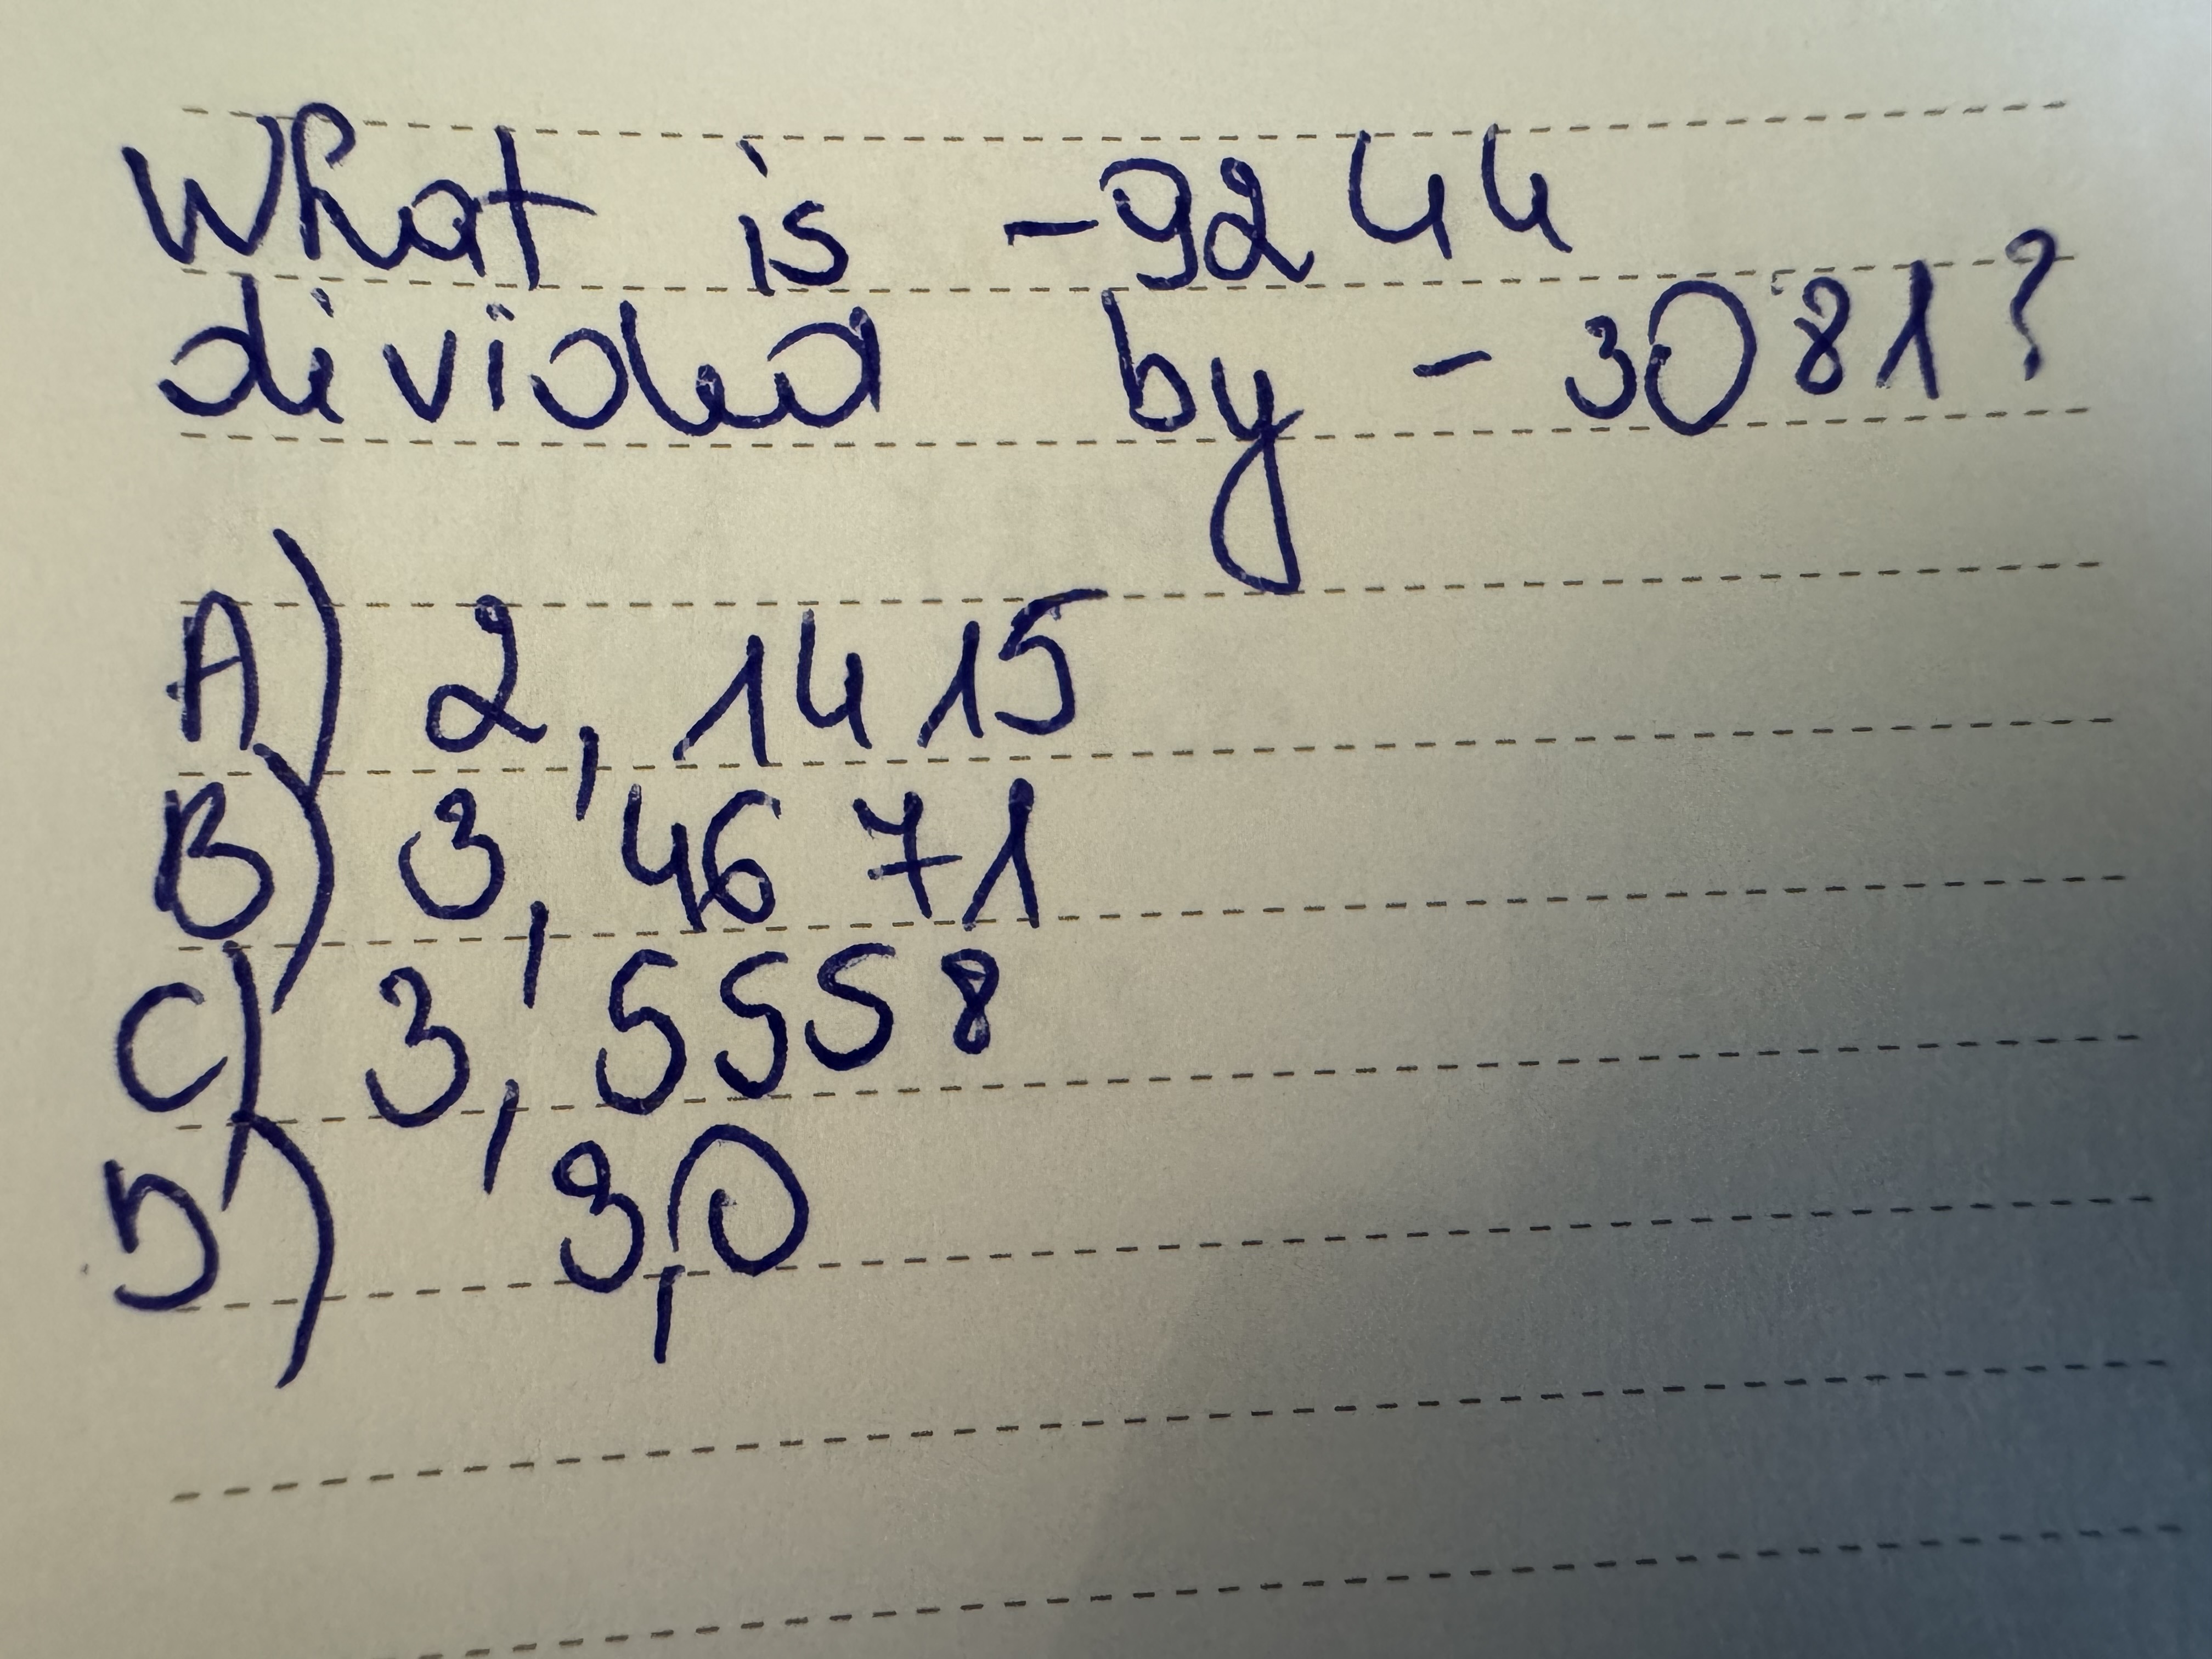 What is -9244
divided by - 3081?
A) 2,1415
B) 3,4671
C) 3,5558
D) 3,0